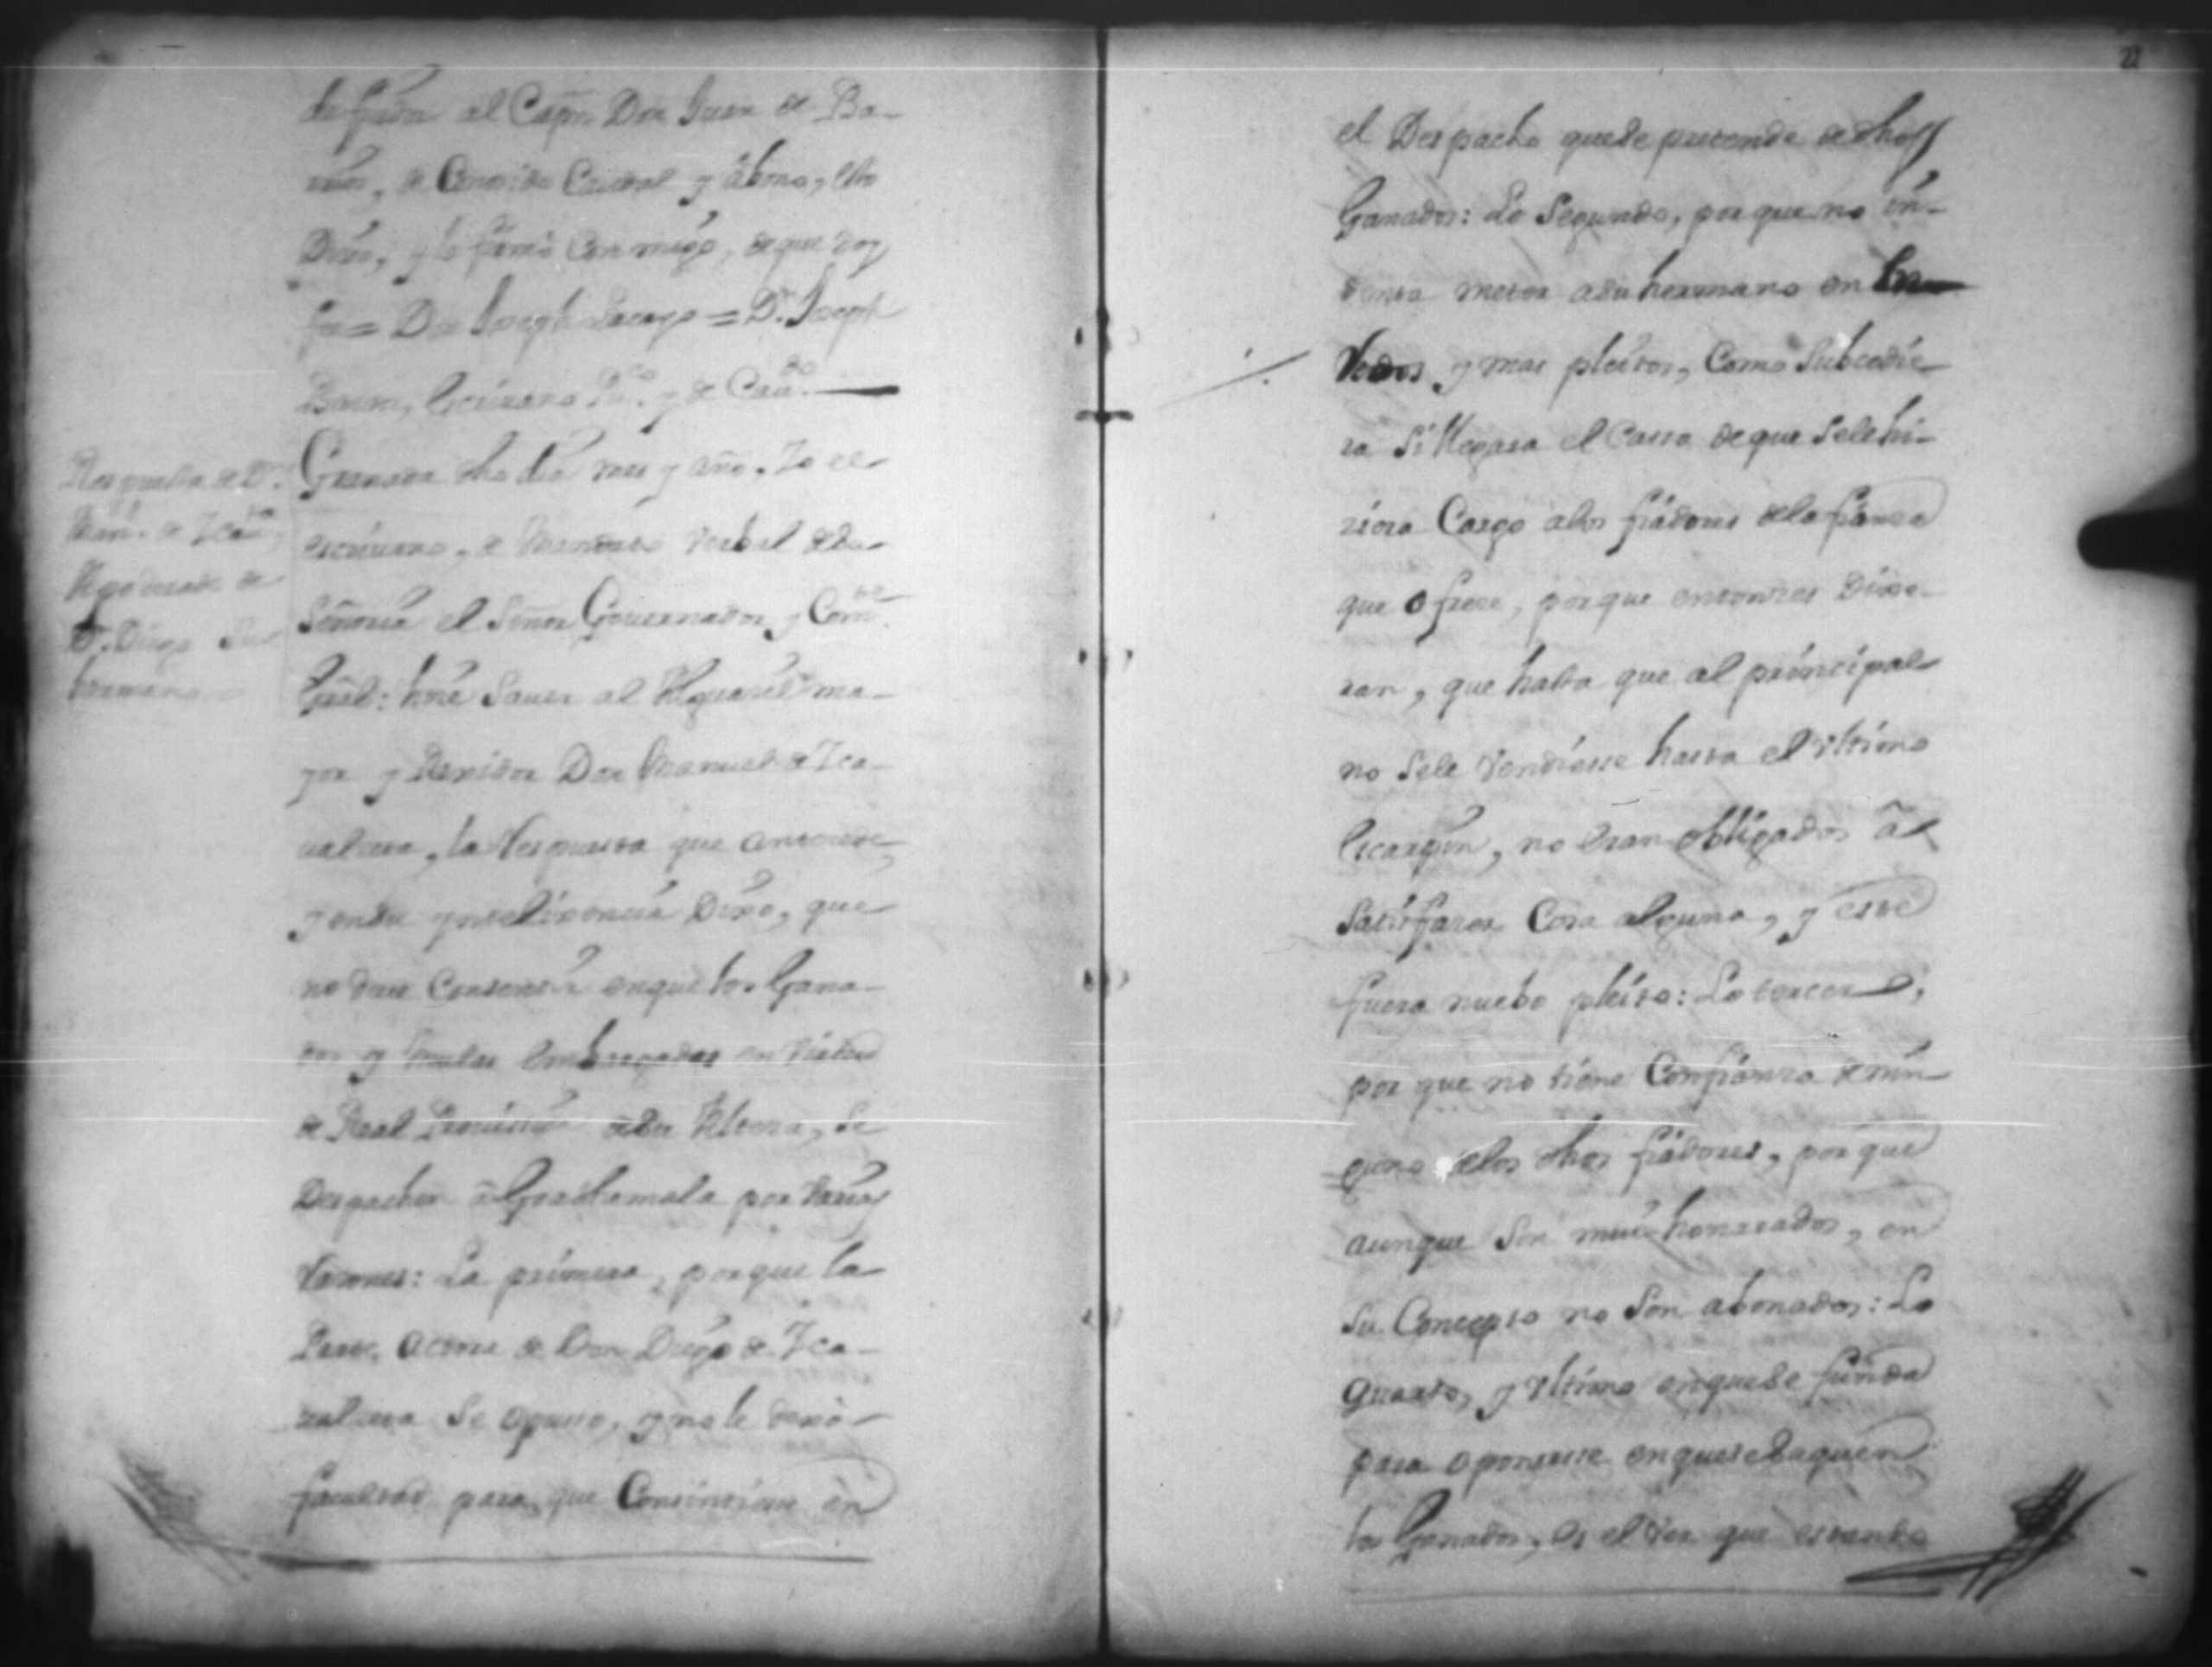 de fiador al Capn. Don Juan de Ba-
rrios, de Conosido Caudal y abono, esto
Dixo, y lo firmó Conmigo, de que doy
fee = Don Joseph Lacayo = D. Joseph
Escrivano Puco. y de Cavdo.
Granada dho dia mes y año, Yo el
escrivano, de Mandato verbal de su
Señoria el Señor Governador, y Comte.
Gral: hise Saver al Alguasil ma-
yor y Rexidor Don Manuel de Ica-
valseta, la Respuesta que antesede,
y en su ynteligencia Dixo, que
no deve Consentir en que los Gana-
dos y mulas Embargadas en virtud
de Real Provission de Su Alteza, Se
Despachen a Goathemala por varias
Razones: La primera, porque la
Parte actora de Don Diego de Ica-
valseta Se opuso, y no le dexó
facultad para que Consintiesse en
Respuesta de Dn.
Manl. de Icavta.
Apoderado de
Dn. Diego Su
hermano
22
el Despacho que se pretende de dhos
Ganados: Lo Segundo, por que no in-
tenta meter a su hermano en En-
redos y mas pleitos, Como Subcedie-
ra Si llegara el Casso de que Se le hi-
ziera Cargo a los fiadores de la fianza
que ofrece, porque entonzes Dixe-
ran, que hasta que al principal
no Se le vendiesse hasta el vltimo
Escarpin, no Eran obligados a
Satisfazer Cosa alguna, y este
fuera nuebo pleito: Lo tercero,
por que no tiene Confianza de nin-
guno de los dhos fiadores, por que
aunque Son mui honrrados, en
Su Concepto no Son abonados: Lo
quarto, y vltimo en que se funda
para oponerse en que se Saquen
los Ganados, es el ver que estando